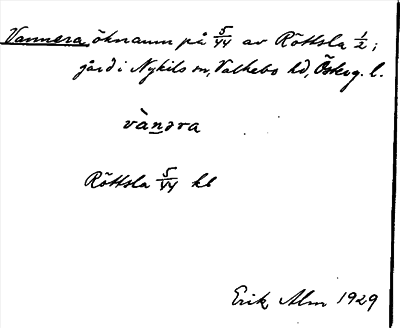 Vannera, öknamn på 5/44 av Röttsla 1/2;
gård i Nykils sn, Valkebo hd, Östeog. l.
vànəra
Röttsla 5/44 kl
Erik Alm 1929